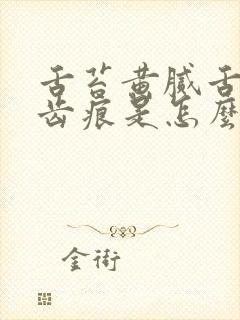 舌苔黄腻舌
齿痕是怎麼
金街